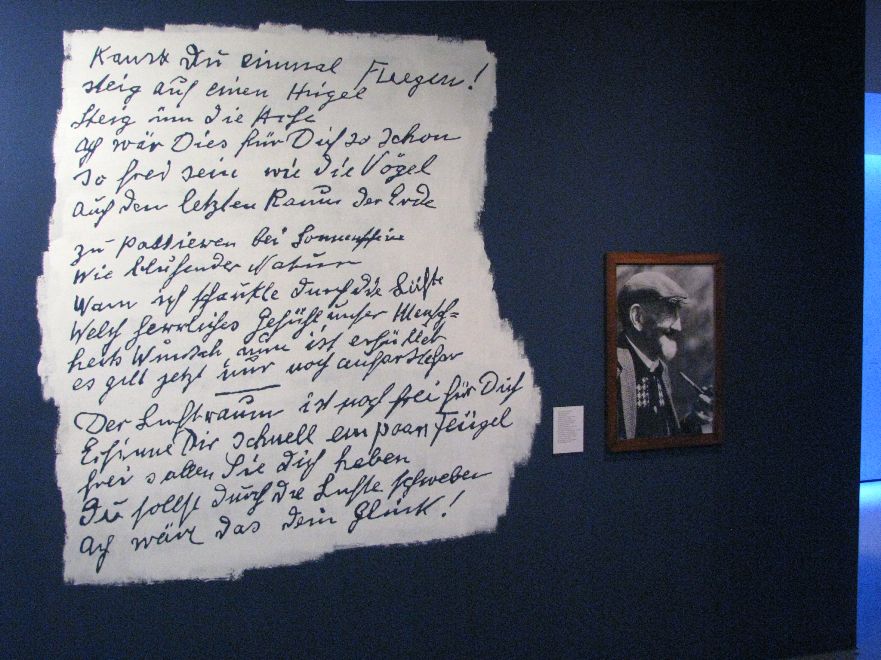 Kanst Du einmal Fliegen!
steig auf einen Hügel
Steig um die
Ach wär Dies für Dich so schön
so frei sein wie die Vögel
auf den letzten Raum der Erde
zu passieren bei Sonnenschein
wie blühender Natur
Wann ich schaukle durch die Lüfte
Welch herrliches Gefühl unser Mensch=
heits Wunsch nun ist erfüllet
es gilt jetzt nur noch
Der Luftraum ist noch frei für Dich
Ersinne Dir schnell ein paar Flügel
frei sollen Sie Dich haben
Du sollst durch die Lüfte schweben
Ach wär das dein Glück!